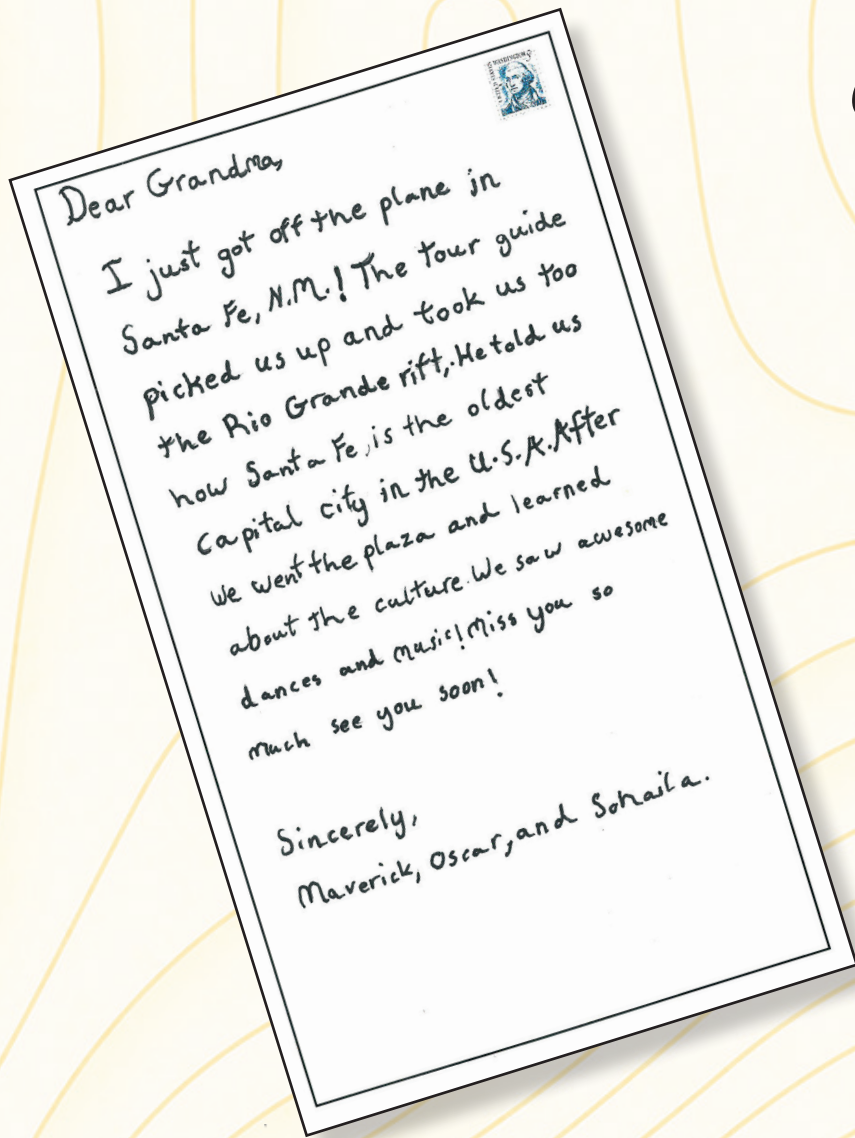 Dear Grandma,
I just got off the plane in
Santa Fe, N.M.! The tour guide
picked us up and took us too
the Rio Grande rift,. He told us
how Santa Fe, is the oldest
capital city in the U.S.A. After
we went the plaza and learned
about the culture. We saw awesome
dances and music! Miss you so
much see you soon!
Sincerely,
Maverick, Oscar, and Sohaila.